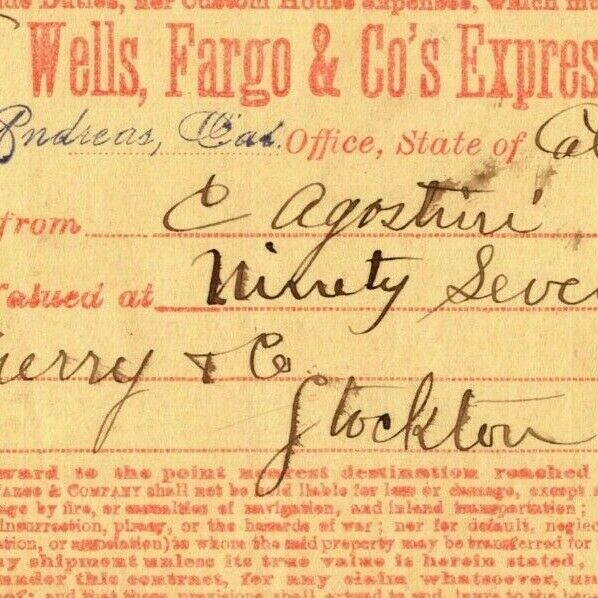 Duties, nor Custom House expenses, which
Wells, Fargo & Co's Express
Andreas, Cal. Office, State of
from C Agostini
Valued at Ninety
& Co
Stockton
ward to the point nearest destination reached
FARGO & COMPANY shall not be held liable for loss or damage, except
by fire, or casualties of navigation, and inland transportation;
insurrection, piracy, or the hazards of war; nor for default, neglec
to whom the said property may be transferred for
shipment unless its true value is herein stated,
under this contract, for any claim whatsoever, un
and that these provisions shall extend to and